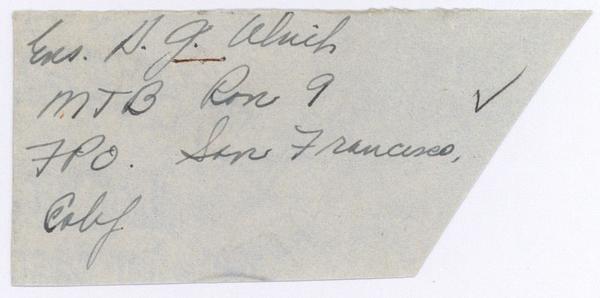 Ens. H. G. Ulrich
MTB Ron 9
FPO. San Francisco,
Calif